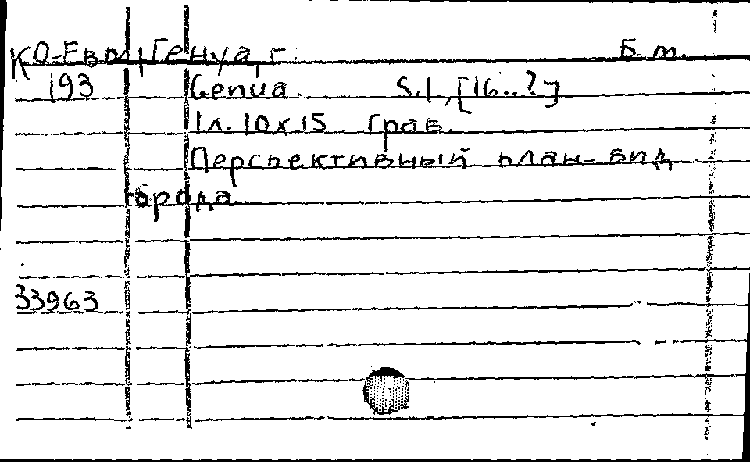 КО-Евр. Генуа, г. Б.м.
193 Genua S.l., [16..?]
1л. 10х15 Грав.
Перспективный план-вид
города
33963